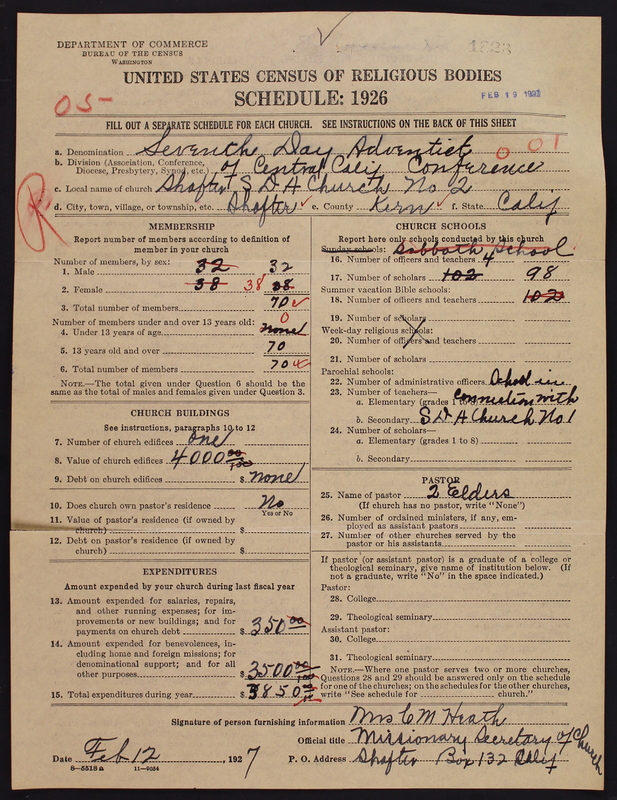 1523
DEPARTMENT OF COMMERCE
BUREAU OF THE CENSUS
WASHINGTON
UNITED STATES CENSUS OF RELIGIOUS BODIES
SCHEDULE: 1926
FEB 19 1927
05-
FILL OUT A SEPARATE SCHEDULE FOR EACH CHURCH. SEE INSTRUCTIONS ON THE BACK OF THIS SHEET
a. Denomination Seventh Day Adventist 001
b. Division (Association, Conference, Diocese, Presbytery, Synod, etc.) of Central Calif Conference
c. Local name of church Shafter S D A Church No 2
d. City, town, village, or township, etc. Shafter e. County Kern f. State Calif
R
MEMBERSHIP
Report number of members according to definition of member in your church
Number of members, by sex:
1. Male 32 32
2. Female 38 38 38
3. Total number of members 70
Number of members under and over 13 years old: 0
4. Under 13 years of age none
5. 13 years old and over 70
6. Total number of members 70
NOTE.—The total given under Question 6 should be the same as the total of males and females given under Question 3.
CHURCH BUILDINGS
See instructions, paragraphs 10 to 12
7. Number of church edifices one
8. Value of church edifices 4000 00/100
9. Debt on church edifices $ none
10. Does church own pastor's residence No
Yes or No
11. Value of pastor's residence (if owned by church) $
12. Debt on pastor's residence (if owned by church) $
EXPENDITURES
Amount expended by your church during last fiscal year
13. Amount expended for salaries, repairs, and other running expenses; for improvements or new buildings; and for payments on church debt $ 350 00
14. Amount expended for benevolences, including home and foreign missions; for denominational support; and for all other purposes $ 3500 00/100
15. Total expenditures during year $ 3850 00
CHURCH SCHOOLS
Report here only schools conducted by this church
Sunday schools: Sabbath School
16. Number of officers and teachers 4
17. Number of scholars 102 98
Summer vacation Bible schools:
18. Number of officers and teachers 102
19. Number of scholars
Week-day religious schools:
20. Number of officers and teachers
21. Number of scholars
Parochial schools:
22. Number of administrative officers School in
23. Number of teachers—
a. Elementary (grades 1 to 8) connection with
b. Secondary S D A Church No 1
24. Number of scholars—
a. Elementary (grades 1 to 8)
b. Secondary
PASTOR
25. Name of pastor 2 Elders
(If church has no pastor, write "None")
26. Number of ordained ministers, if any, employed as assistant pastors
27. Number of other churches served by the pastor or his assistants
If pastor (or assistant pastor) is a graduate of a college or theological seminary, give name of institution below. (If not a graduate, write "No" in the space indicated.)
Pastor:
28. College
29. Theological seminary
Assistant pastor:
30. College
31. Theological seminary
NOTE.—Where one pastor serves two or more churches, Questions 28 and 29 should be answered only on the schedule for one of the churches; on the schedules for the other churches, write "See schedule for church."
Signature of person furnishing information Mrs C M Heath
Official title Missionary Secretary of Church
Date Feb 12, 1927 P. O. Address Shafter Box 132 Calif
8—5518a 11—9034